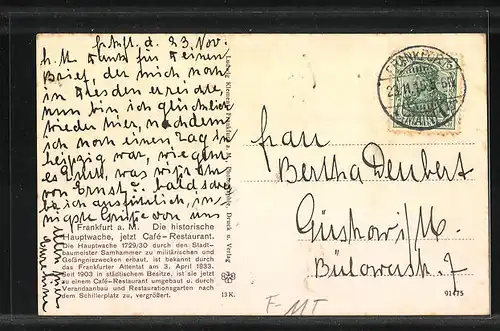 Frkft. d. 23. Nov.
L. M. Dank für Deinen
Brief, der mich noch
in Dresden erreichte,
nun bin ich glücklich
wieder hier, nachdem
ich noch einen Tag in
Leipzig war, wie geht
es Euch, was
von Ernst? bald
ich ausführlich, in-
nigste Grüsse von uns
allen
Frankfurt a. M. Die historische
Hauptwache, jetzt Café-Restaurant.
Die Hauptwache 1729/30 durch den Stadt-
baumeister Samhammer zu militärischen und
Gefängniszwecken erbaut, ist bekannt durch
das Frankfurter Attentat am 3. April 1833.
Seit 1903 in städtischem Besitze, ist sie jetzt
zu einem Café-Restaurant umgebaut u. durch
Verandaanbau und Restaurationsgarten nach
dem Schillerplatz zu, vergrößert.
Ludwig Klement, Frankfurt a. M.
Druck u. Verlag
13 K.
FRANKFURT
(MAIN)
Frau
Bertha Deubert
Güstrow i/M.
Bülowerstr. 7
F MT
91475